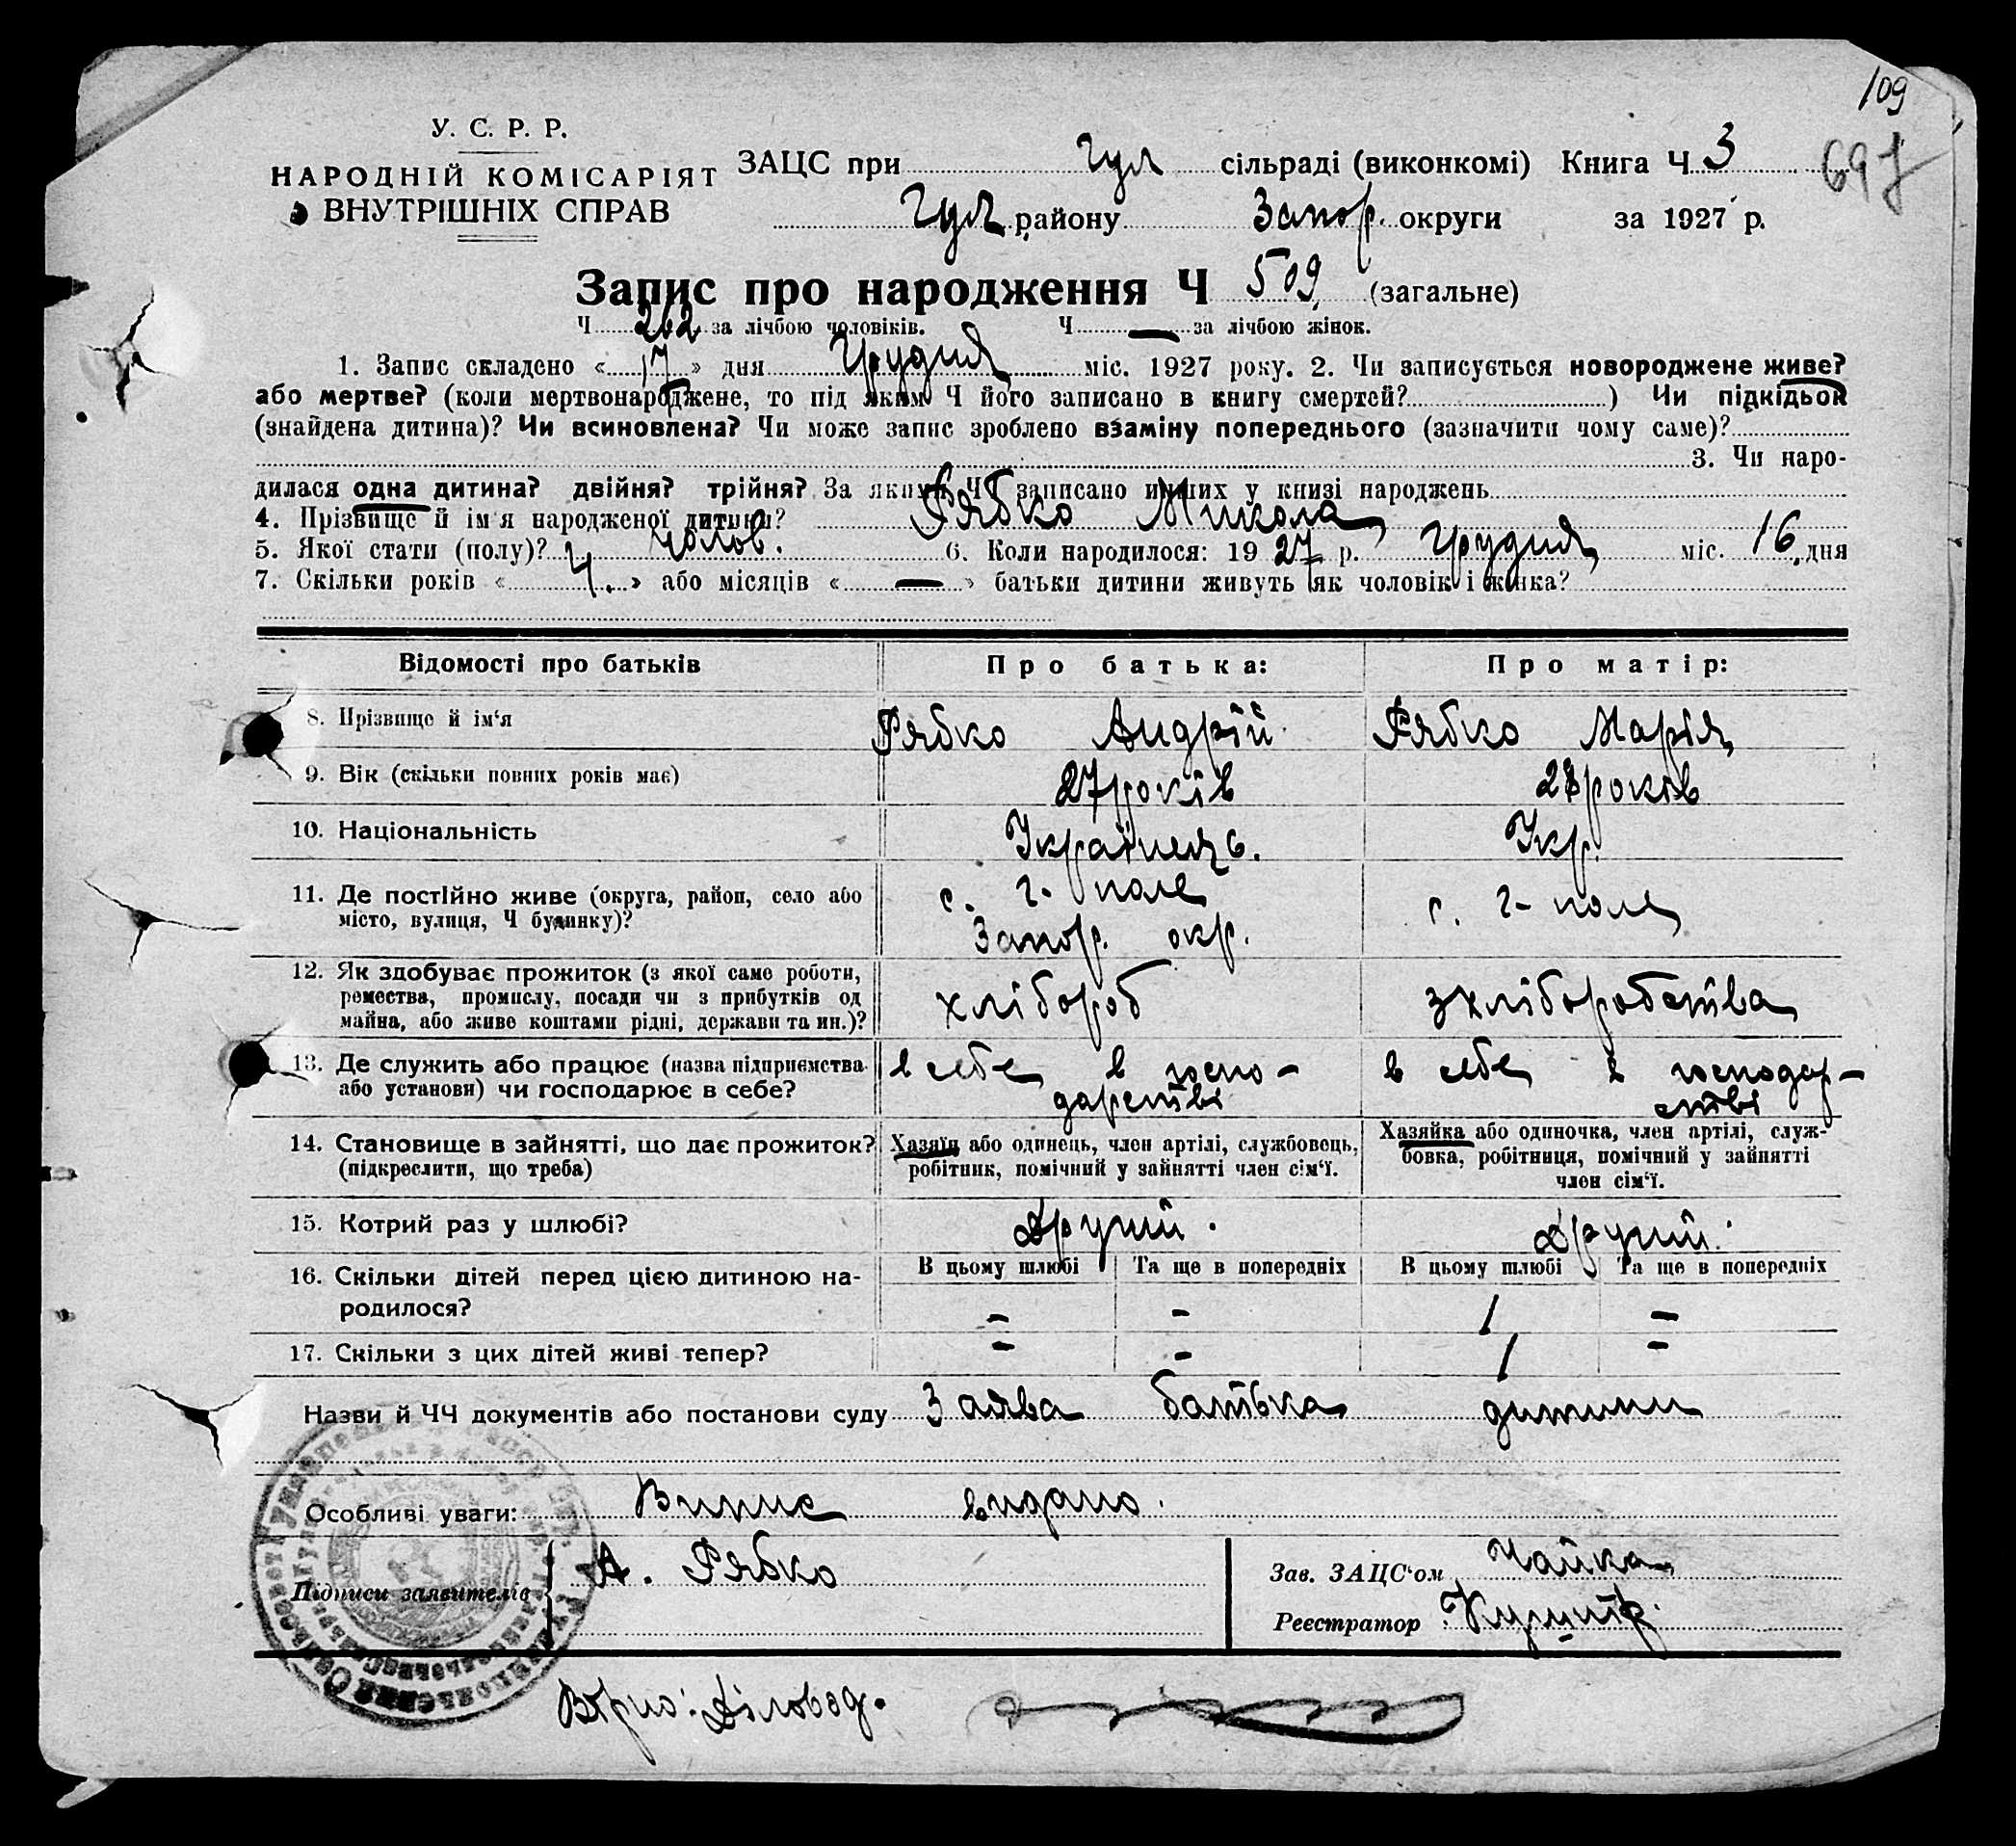 109
697
У. С. Р. Р.
НАРОДНІЙ КОМІСАРІЯТ
ВНУТРІШНІХ СПРАВ
ЗАЦС при Гул сільраді (виконкомі) Книга Ч 3
Гул району Запор. округи за 1927 р.
Запис про народження Ч 509 (загальне)
Ч 262 за лічбою чоловіків. Ч — за лічбою жінок.
1. Запис складено « 17 » дня Грудня міс. 1927 року. 2. Чи записується новороджене живе?
або мертве? (коли мертвонароджене, то під яким Ч його записано в книгу смертей? ) Чи підкідьок
(знайдена дитина)? Чи всиновлена? Чи може запис зроблено взаміну попереднього (зазначити чому саме)?
3. Чи наро-
дилася одна дитина? двійня? трійня? За яким Ч записано инших у книзі народжень
4. Прізвище й ім'я народженої дитини? Рябко Микола
5. Якої стати (полу)? чолов. 6. Коли народилося: 1927 р. Грудня міс. 16 дня
7. Скільки років « 4 » або місяців « — » батьки дитини живуть як чоловік і жінка?
Відомості про батьків Про батька: Про матір:
8. Прізвище й ім'я Рябко Андрій Рябко Марія
9. Вік (скільки повних років має) 27 років років
10. Національність Українець. Укр.
11. Де постійно живе (округа, район, село або
місто, вулиця, Ч будинку)?
с. Г- поле
Запор. окр.
с. Г- поле
12. Як здобуває прожиток (з якої саме роботи,
ремества, промислу, посади чи з прибутків од
майна, або живе коштами рідні, держави та ин.)?
хлібороб
з хліборобства
13. Де служить або працює (назва підприємства
або установи) чи господарює в себе?
в себе в госпо-
дарстві
в себе в господар-
стві
14. Становище в зайнятті, що дає прожиток?
(підкреслити, що треба)
Хазяїн або одинець, член артілі, службовець,
робітник, помічний у зайнятті член сім'ї.
Хазяйка або одиночка, член артілі, служ-
бовка, робітниця, помічний у зайнятті
член сім'ї.
15. Котрий раз у шлюбі? Другий. Другий.
16. Скільки дітей перед цією дитиною на-
родилося?
В цьому шлюбі Та ще в попередніх В цьому шлюбі Та ще в попередніх
– – 1 –
17. Скільки з цих дітей живі тепер? – – 1 –
Назви й ЧЧ документів або постанови суду Заява батька дитини
Особливі уваги: Випис видано.
Підписи заявителів А. Рябко
Зав. ЗАЦС'ом Чайка
Реєстратор
Вірно: Діловод.